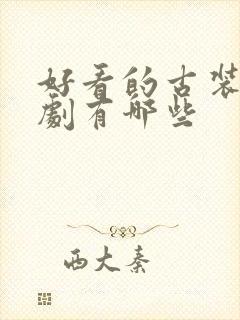 好看的古装
剧有那些
西大秦